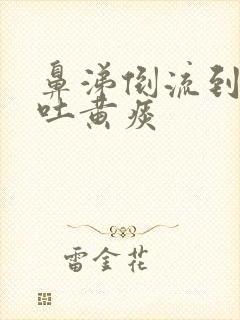 鼻涕倒流到
吐黄痰
雷金花